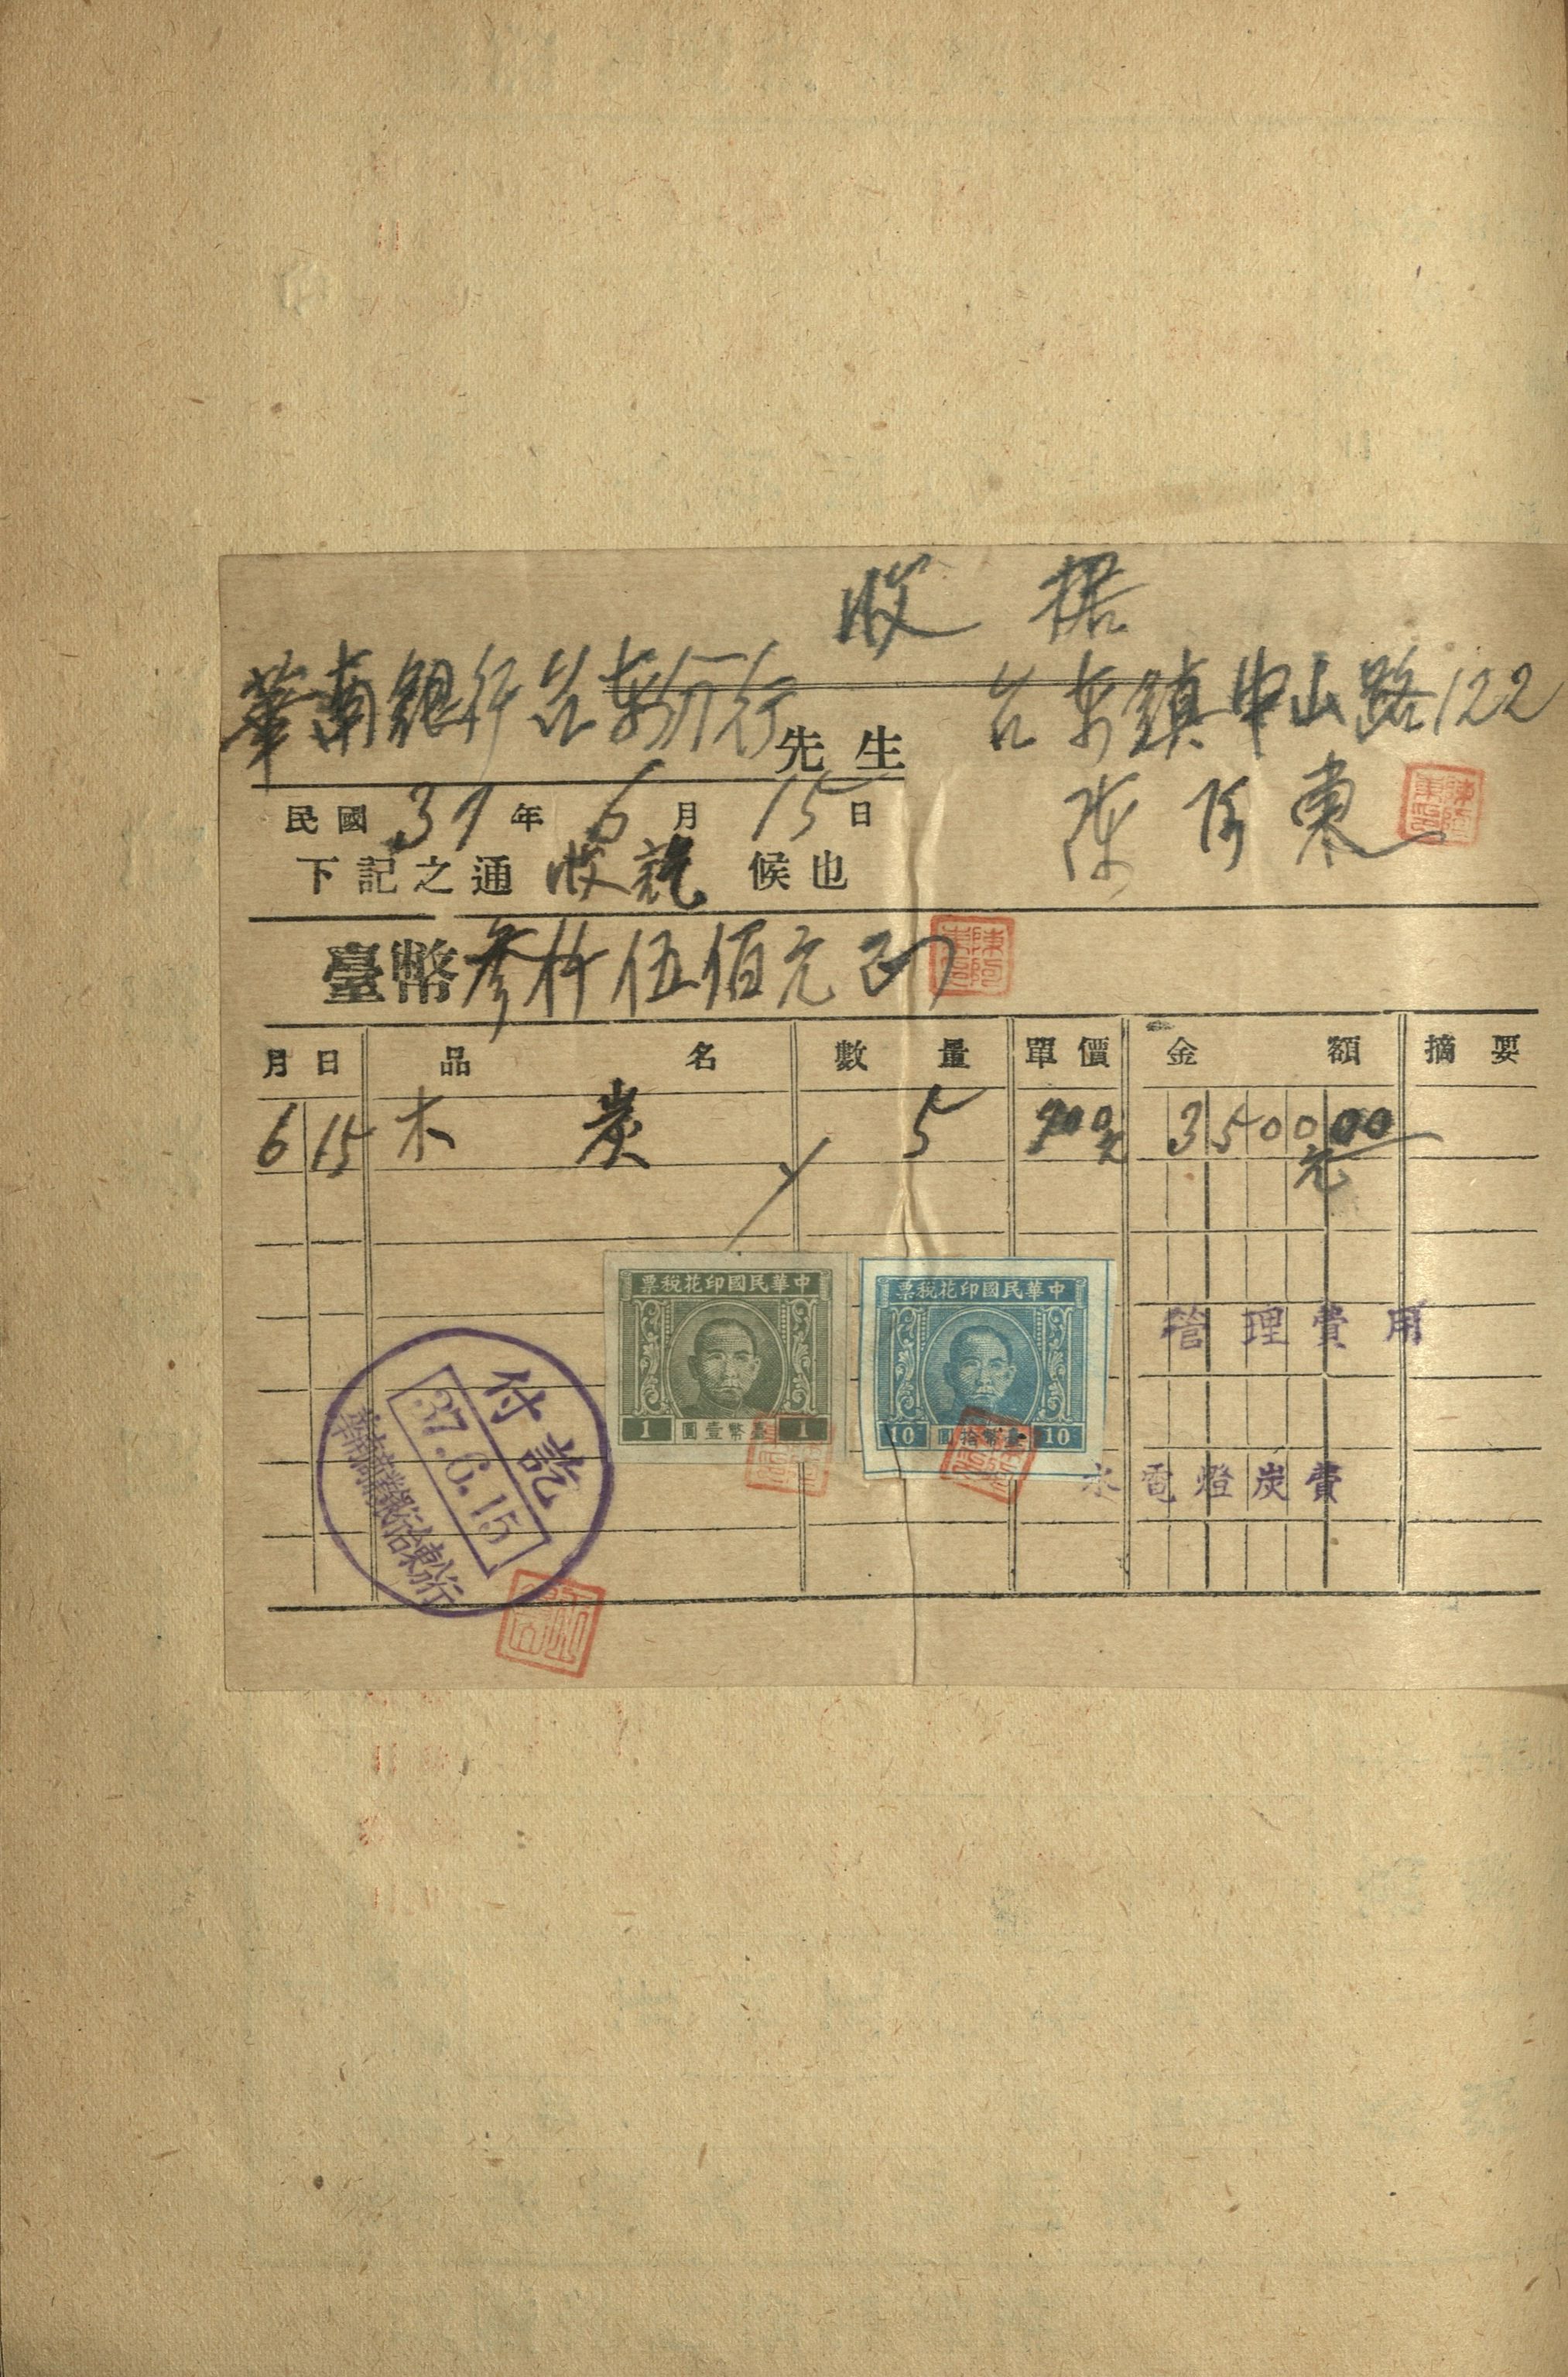 收据
華南銀行台東分行先生
台東鎮中山路122
民國37年6月15日
陳阿東
下記之通收訖候也
臺幣參仟伍佰元正
月日 品名 數量 單價 金額 摘要
6 15 木炭 5 700元 350000元
中華民國印花稅票
1 臺幣壹圓 1
中華民國印花稅票
10 臺幣拾圓 10
管理費用
水電燈炭費
付訖
37.6.15
華南商業銀行台東分行